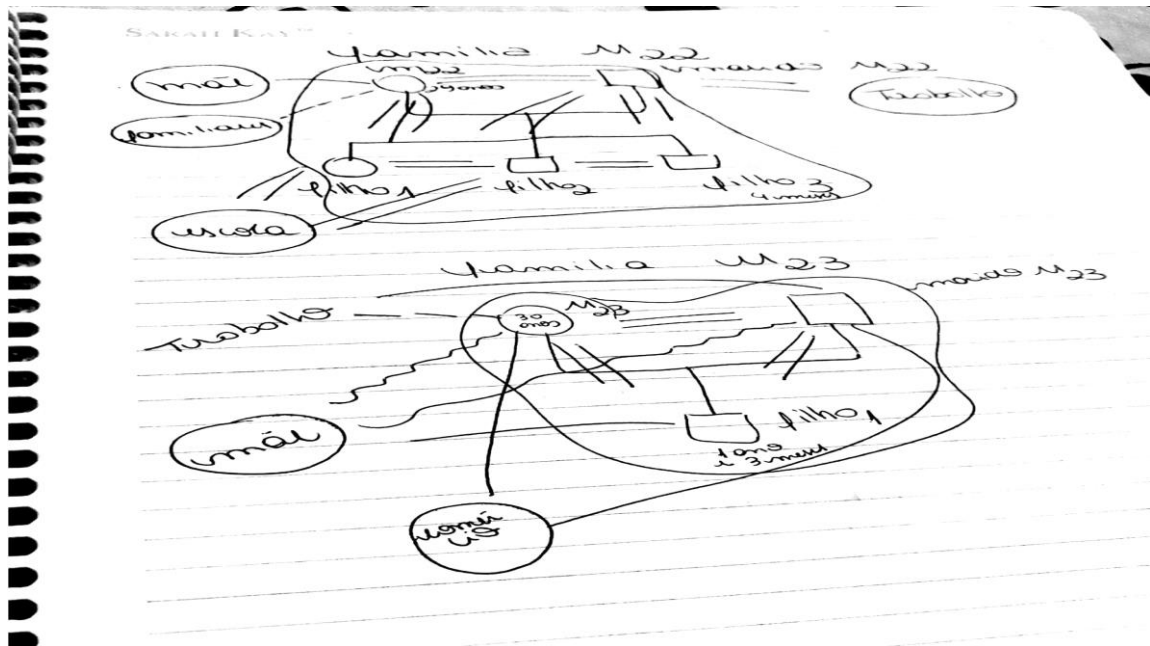 SARAH KAY
família M22
mãe
M22
29 anos
marido M22
Trabalho
familiares
filho 1
filho 2
filho 3
4 meses
escola
família M23
marido M23
Trabalho
30 anos
M23
mãe
filho 1
1 ano
e 3 meses